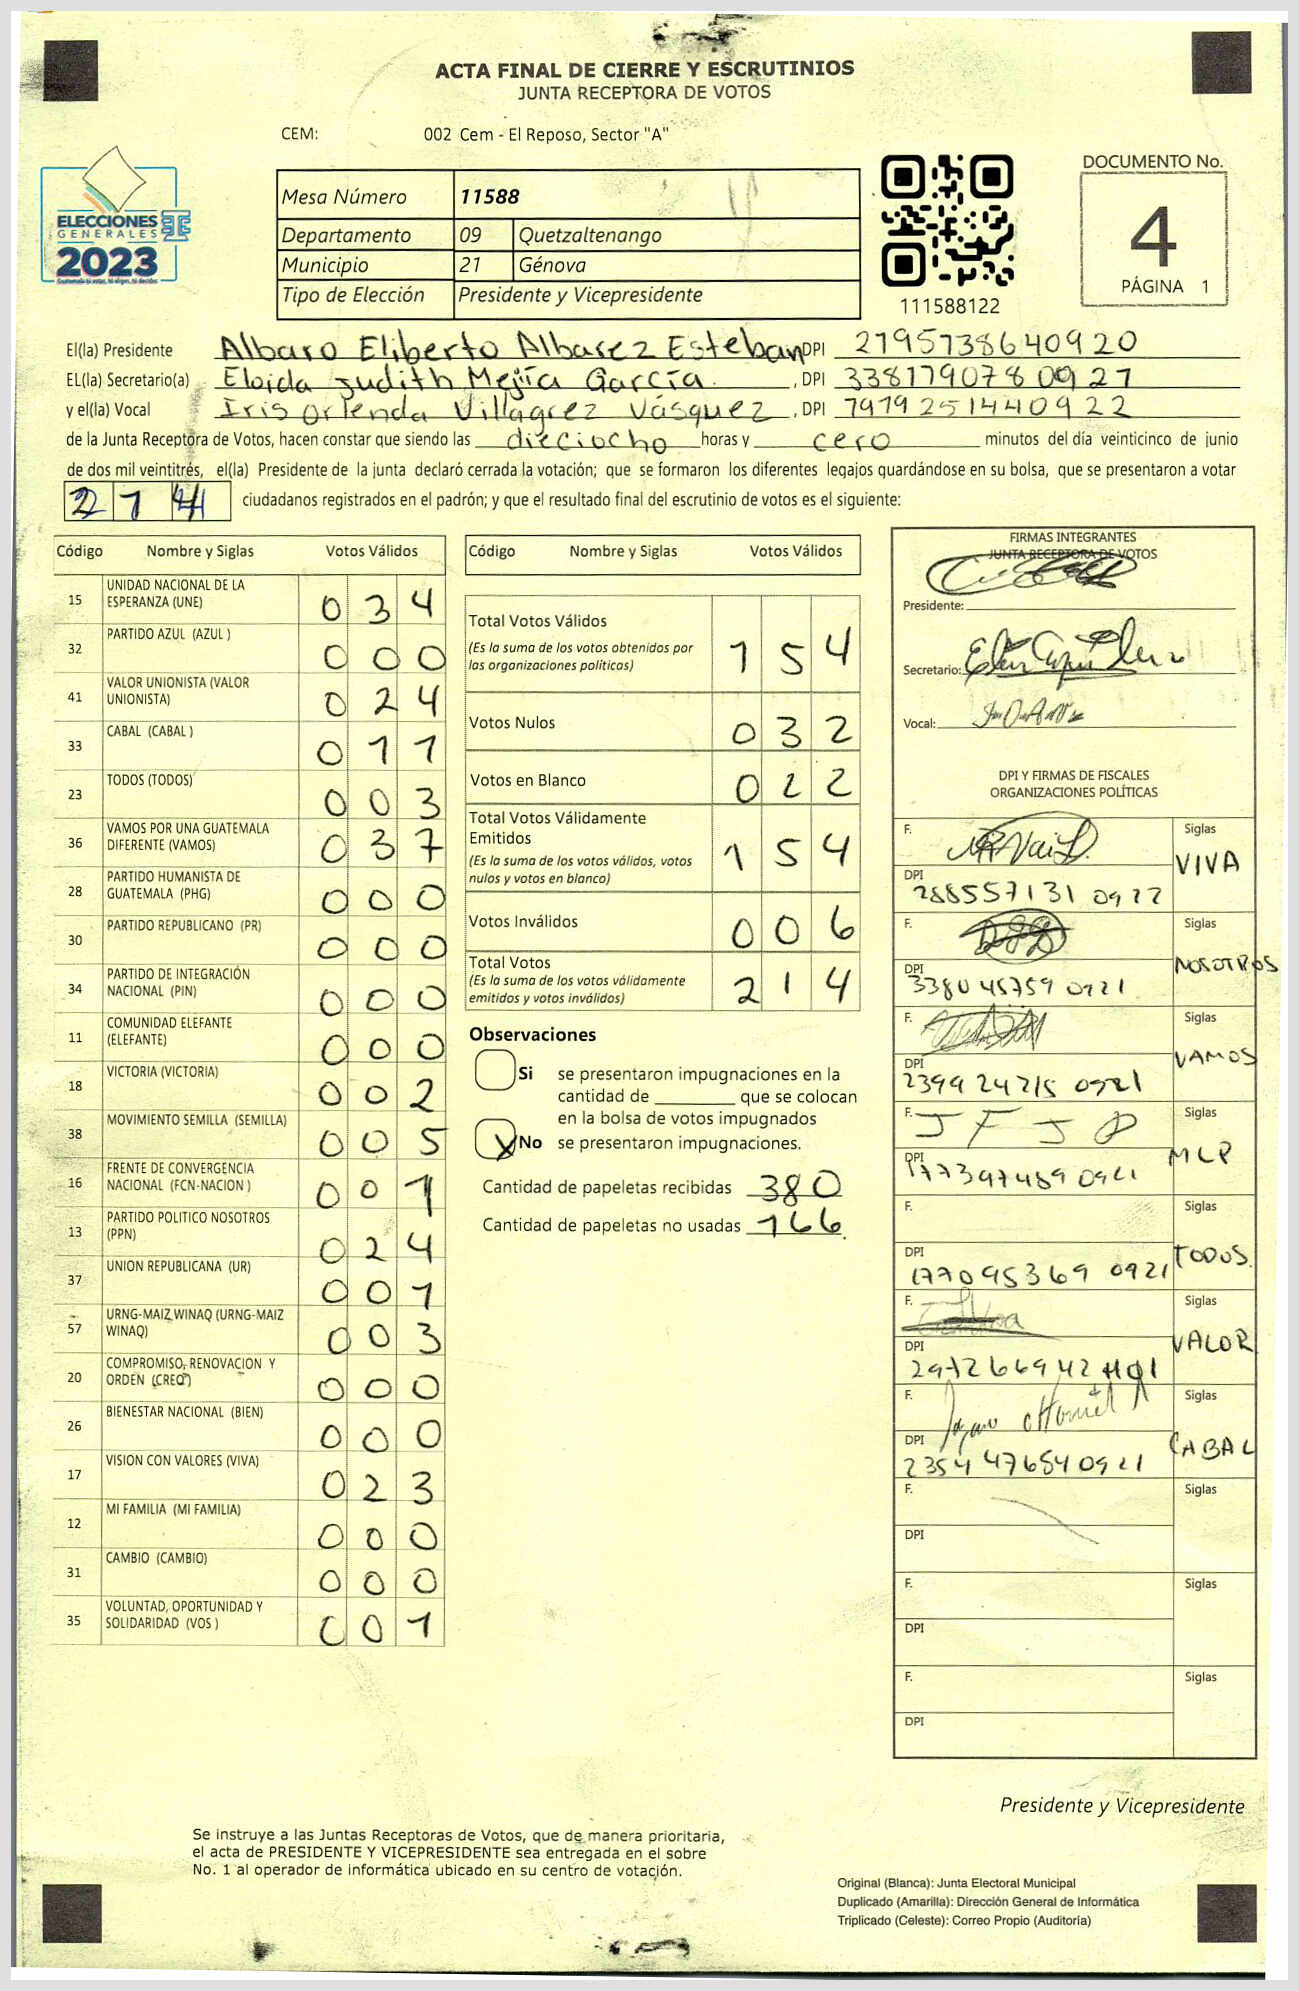 ACTA FINAL DE CIERRE Y ESCRUTINIOS
JUNTA RECEPTORA DE VOTOS
CEM: 002 Cem - El Reposo, Sector "A"
ELECCIONES
GENERALES
2023
Mesa Número 11588
Departamento 09 Quetzaltenango
Municipio 21 Génova
Tipo de Elección Presidente y Vicepresidente
111588122
DOCUMENTO No.
4
PÁGINA 1
El(la) Presidente Albaro Eliberto Albarez Esteban DPI 2795738640920
EL(la) Secretario(a) Eloida Judith Mejía García. , DPI 3381790780927
y el(la) Vocal Iris Orlenda Villagrez Vásquez , DPI 7979251440922
de la Junta Receptora de Votos, hacen constar que siendo las dieciocho horas y cero minutos del día veinticinco de junio
de dos mil veintitrés, el(la) Presidente de la junta declaró cerrada la votación; que se formaron los diferentes legajos quardándose en su bolsa, que se presentaron a votar
214 ciudadanos registrados en el padrón; y que el resultado final del escrutinio de votos es el siguiente:
Código Nombre y Siglas Votos Válidos
15 UNIDAD NACIONAL DE LA
ESPERANZA (UNE) 0 3 4
32 PARTIDO AZUL (AZUL ) 0 0 0
41 VALOR UNIONISTA (VALOR
UNIONISTA) 0 2 4
33 CABAL (CABAL ) 0 1 1
23 TODOS (TODOS) 0 0 3
36 VAMOS POR UNA GUATEMALA
DIFERENTE (VAMOS) 0 3 7
28 PARTIDO HUMANISTA DE
GUATEMALA (PHG) 0 0 0
30 PARTIDO REPUBLICANO (PR) 0 0 0
34 PARTIDO DE INTEGRACIÓN
NACIONAL (PIN) 0 0 0
11 COMUNIDAD ELEFANTE
(ELEFANTE) 0 0 0
18 VICTORIA (VICTORIA) 0 0 2
38 MOVIMIENTO SEMILLA (SEMILLA) 0 0 5
16 FRENTE DE CONVERGENCIA
NACIONAL (FCN-NACION ) 0 0 1
13 PARTIDO POLITICO NOSOTROS
(PPN) 0 2 4
37 UNION REPUBLICANA (UR) 0 0 1
57 URNG-MAIZ WINAQ (URNG-MAIZ
WINAQ) 0 0 3
20 COMPROMISO, RENOVACION Y
ORDEN (CREO) 0 0 0
26 BIENESTAR NACIONAL (BIEN) 0 0 0
17 VISION CON VALORES (VIVA) 0 2 3
12 MI FAMILIA (MI FAMILIA) 0 0 0
31 CAMBIO (CAMBIO) 0 0 0
35 VOLUNTAD, OPORTUNIDAD Y
SOLIDARIDAD (VOS ) 0 0 1
Código Nombre y Siglas Votos Válidos
Total Votos Válidos
(Es la suma de los votos obtenidos por
las organizaciones políticas) 1 5 4
Votos Nulos 0 3 2
Votos en Blanco 0 2 2
Total Votos Válidamente
Emitidos
(Es la suma de los votos válidos, votos
nulos y votos en blanco) 1 5 4
Votos Inválidos 0 0 6
Total Votos
(Es la suma de los votos válidamente
emitidos y votos inválidos) 2 1 4
Observaciones
Si se presentaron impugnaciones en la
cantidad de ________ que se colocan
en la bolsa de votos impugnados
X No se presentaron impugnaciones.
Cantidad de papeletas recibidas 380
Cantidad de papeletas no usadas 166
FIRMAS INTEGRANTES
JUNTA RECEPTORA DE VOTOS
Presidente:
Secretario:
Vocal:
DPI Y FIRMAS DE FISCALES
ORGANIZACIONES POLÍTICAS
F. Siglas
VIVA
DPI
288557131 0922
F. Siglas
NOSOTROS
DPI
3380 45759 0921
F. Siglas
VAMOS
DPI
2399 24215 0921
F. J F J P Siglas
MLP
DPI
177397489 0921
F. Siglas
TODOS
DPI
177095369 0921
F. Siglas
VALOR
DPI
297266942 1101
F. Siglas
CABAL
DPI
2354 47654 0921
F. Siglas
DPI
F. Siglas
DPI
F. Siglas
DPI
Presidente y Vicepresidente
Se instruye a las Juntas Receptoras de Votos, que de manera prioritaria,
el acta de PRESIDENTE Y VICEPRESIDENTE sea entregada en el sobre
No. 1 al operador de informática ubicado en su centro de votación.
Original (Blanca): Junta Electoral Municipal
Duplicado (Amarilla): Dirección General de Informática
Triplicado (Celeste): Correo Propio (Auditoría)